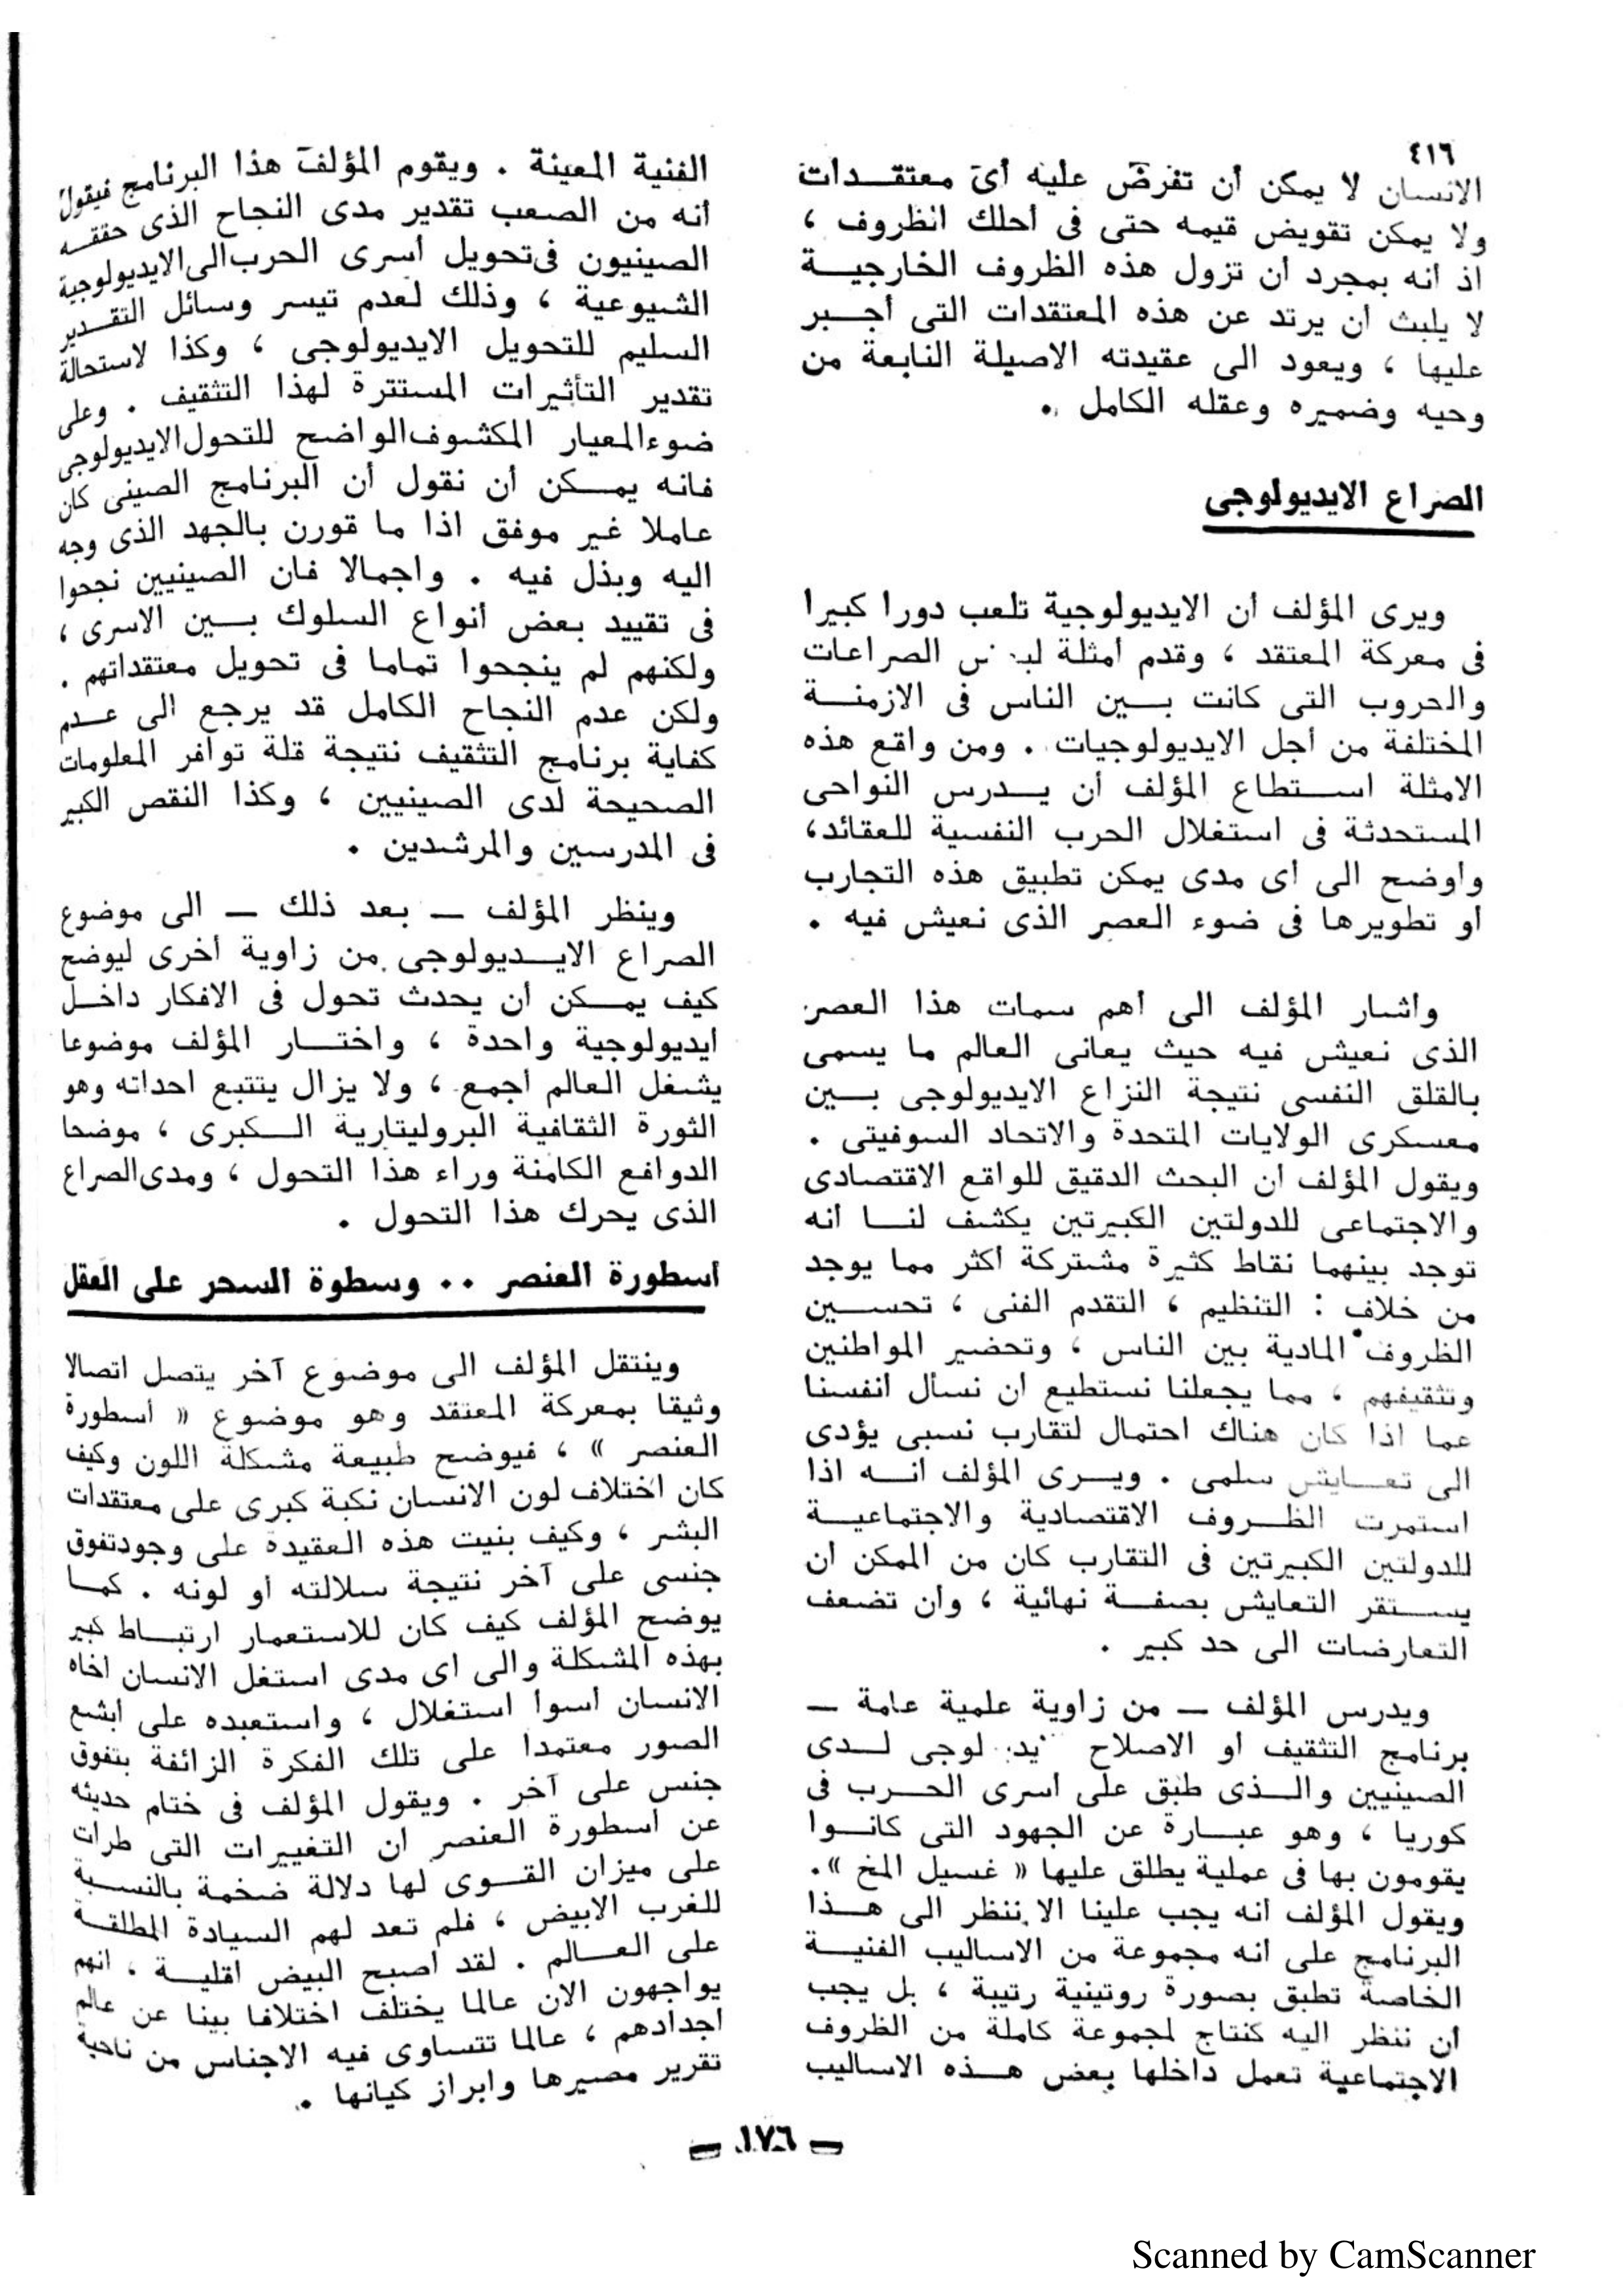 ٤١٦
الانسان لا يمكن أن تفرض عليه أى معتقـدات
ولا يمكن تقويض قيمه حتى فى أحلك الظروف ،
اذ انه بمجرد أن تزول هذه الظروف الخارجيـة
لا يلبث أن يرتد عن هذه المعتقدات التى أجـبر
عليها ، ويعود الى عقيدته الاصيلة النابعة من
وحيه وضميره وعقله الكامل .
الصراع الايديولوجى
ويرى المؤلف أن الايديولوجية تلعب دورا كبيرا
فى معركة المعتقد ، وقدم أمثلة الصراعات
والحروب التى كانت بـين الناس فى الازمنـة
المختلفة من أجل الايديولوجيات . ومن واقع هذه
الامثلة اسـتطاع المؤلف أن يـدرس النواحى
المستحدثة فى استغلال الحرب النفسية للعقائد،
وأوضح الى أى مدى يمكن تطبيق هذه التجارب
أو تطويرها فى ضوء العصر الذى نعيش فيه .
وأشار المؤلف الى أهم سمات هذا العصر
الذى نعيش فيه حيث يعانى العالم ما يسمى
بالقلق النفسى نتيجة النزاع الايديولوجى بـين
معسكرى الولايات المتحدة والاتحاد السوفيتى .
ويقول المؤلف ان البحث الدقيق للواقع الاقتصادى
والاجتماعى للدولتين الكبيرتين يكشف لنـا أنه
توجد بينهما نقاط كثيرة مشتركة أكثر مما يوجد
من خلاف : التنظيم ، التقدم الفنى ، تحسـين
الظروف المادية بين الناس ، وتحضير المواطنين
وتثقيفهم ، مما يجعلنا نستطيع أن نسأل أنفسنا
عما اذا كان هناك احتمال لتقارب نسبى يؤدى
الى تعـايش سلمى . ويـرى المؤلف انـه اذا
استمرت الظـروف الاقتصادية والاجتماعيـة
للدولتين الكبيرتين فى التقارب كان من الممكن أن
يسـتقر التعايش بصفـة نهائية ، وأن تضعف
التعارضات الى حد كبير .
ويدرس المؤلف ـ من زاوية علمية عامة ـ
برنامج التثقيف أو الاصلاح لـدى
الصينيين والـذى طبق على أسرى الحـرب فى
كوريا ، وهو عبـارة عن الجهود التى كانـوا
يقومون بها فى عملية يطلق عليها « غسيل المخ ».
ويقول المؤلف انه يجب علينا الا ننظر الى هـذا
البرنامج على انه مجموعة من الاساليب الفنيـة
الخاصة تطبق بصورة روتينية رتيبة ، بل يجب
أن ننظر اليه كنتاج لمجموعة كاملة من الظروف
الاجتماعية تعمل داخلها بعض هـذه الاساليب
الفنية المعينة . ويقوم المؤلف هذا البرنامج فيقول
أنه من الصعب تقدير مدى النجاح الذى حققـه
الصينيون فى تحويل أسرى الحرب الى الايديولوجية
الشيوعية ، وذلك لعدم تيسر وسائل التقـدير
السليم للتحويل الايديولوجى ، وكذا لاستحالة
تقدير التأثيرات المستترة لهذا التثقيف . وعلى
ضوء المعيار المكشوف الواضح للتحول الايديولوجى
فانه يمـكن أن نقول أن البرنامج الصينى كان
عاملا غير موفق اذا ما قورن بالجهد الذى وجه
اليه وبذل فيه . واجمالا فان الصينيين نجحوا
فى تقييد بعض أنواع السلوك بـين الاسرى ،
ولكنهم لم ينجحوا تماما فى تحويل معتقداتهم .
ولكن عدم النجاح الكامل قد يرجع الى عـدم
كفاية برنامج التثقيف نتيجة قلة توافر المعلومات
الصحيحة لدى الصينيين ، وكذا النقص الكبير
فى المدرسين والمرشدين .
وينظر المؤلف ـ بعد ذلك ـ الى موضوع
الصراع الايـديولوجى من زاوية أخرى ليوضح
كيف يمـكن أن يحدث تحول فى الافكار داخـل
ايديولوجية واحدة ، واختـار المؤلف موضوعا
يشغل العالم أجمع ، ولا يزال يتتبع احداثه وهو
الثورة الثقافية البروليتارية الـكبرى ، موضحا
الدوافع الكامنة وراء هذا التحول ، ومدى الصراع
الذى يحرك هذا التحول .
أسطورة العنصر .. وسطوة السحر على العقل
وينتقل المؤلف الى موضوع آخر يتصل اتصالا
وثيقا بمعركة المعتقد وهو موضوع « أسطورة
العنصر » ، فيوضح طبيعة مشكلة اللون وكيف
كان اختلاف لون الانسان نكبة كبرى على معتقدات
البشر ، وكيف بنيت هذه العقيدة على وجود تفوق
جنسى على آخر نتيجة سلالته أو لونه . كمـا
يوضح المؤلف كيف كان للاستعمار ارتبـاط كبير
بهذه المشكلة والى أى مدى استغل الانسان أخاه
الانسان أسوأ استغلال ، واستعبده على أبشع
الصور معتمدا على تلك الفكرة الزائفة بتفوق
جنس على آخر . ويقول المؤلف فى ختام حديثه
عن أسطورة العنصر أن التغييرات التى طرأت
على ميزان القـوى لها دلالة ضخمة بالنسـبة
للغرب الابيض ، فلم تعد لهم السيادة المطلقـة
على العـالم . لقد أصبح البيض أقليـة ، انهم
يواجهون الان عالما يختلف اختلافا بينا عن عالم
أجدادهم ، عالما تتساوى فيه الاجناس من ناحية
تقرير مصيرها وابراز كيانها .
ـ ١٧٦ ـ
Scanned by CamScanner